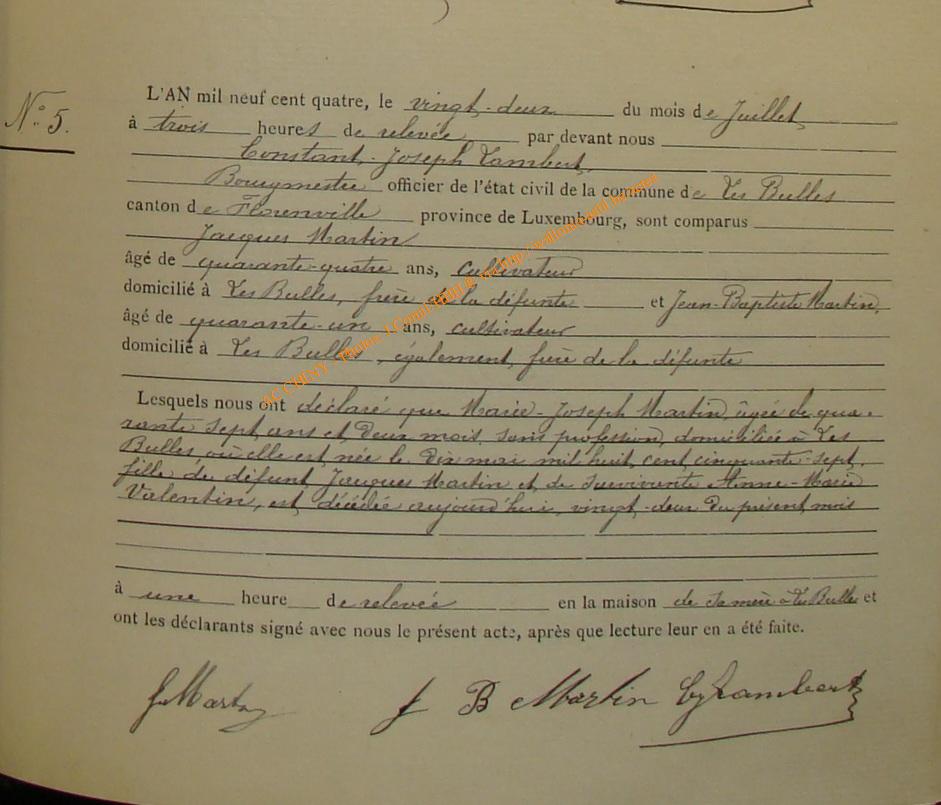 N° 5.
L'AN mil neuf cent quatre, le vingt-deux du mois de Juillet
à trois heures de relevée par devant nous
Constant-Joseph Lambert,
Bourgmestre officier de l'état civil de la commune de Les Bulles
canton de Florenville province de Luxembourg, sont comparus
Jacques Martin
âgé de quarante-quatre ans, cultivateur
domicilié à Les Bulles, frère de la défunte et Jean-Baptiste Martin,
âgé de quarante-un ans, cultivateur
domicilié à Les Bulles, également frère de la défunte
Lesquels nous ont déclaré que Marie-Joseph Martin, âgée de qua-
rante sept ans et deux mois, sans profession, domiciliée à Les
Bulles où elle est née le dix mai mil huit cent cinquante-sept,
fille de défunt Jacques Martin et de survivante Anne-Marie
Valentin, est décédée aujourd'hui, vingt-deux du présent mois
à une heure de relevée en la maison de sa mère à Les Bulles et
ont les déclarants signé avec nous le présent acte, après que lecture leur en a été faite.
J. Martin J B Martin CJLambert
AC CHINY - Photos J.Comblen @ via http://